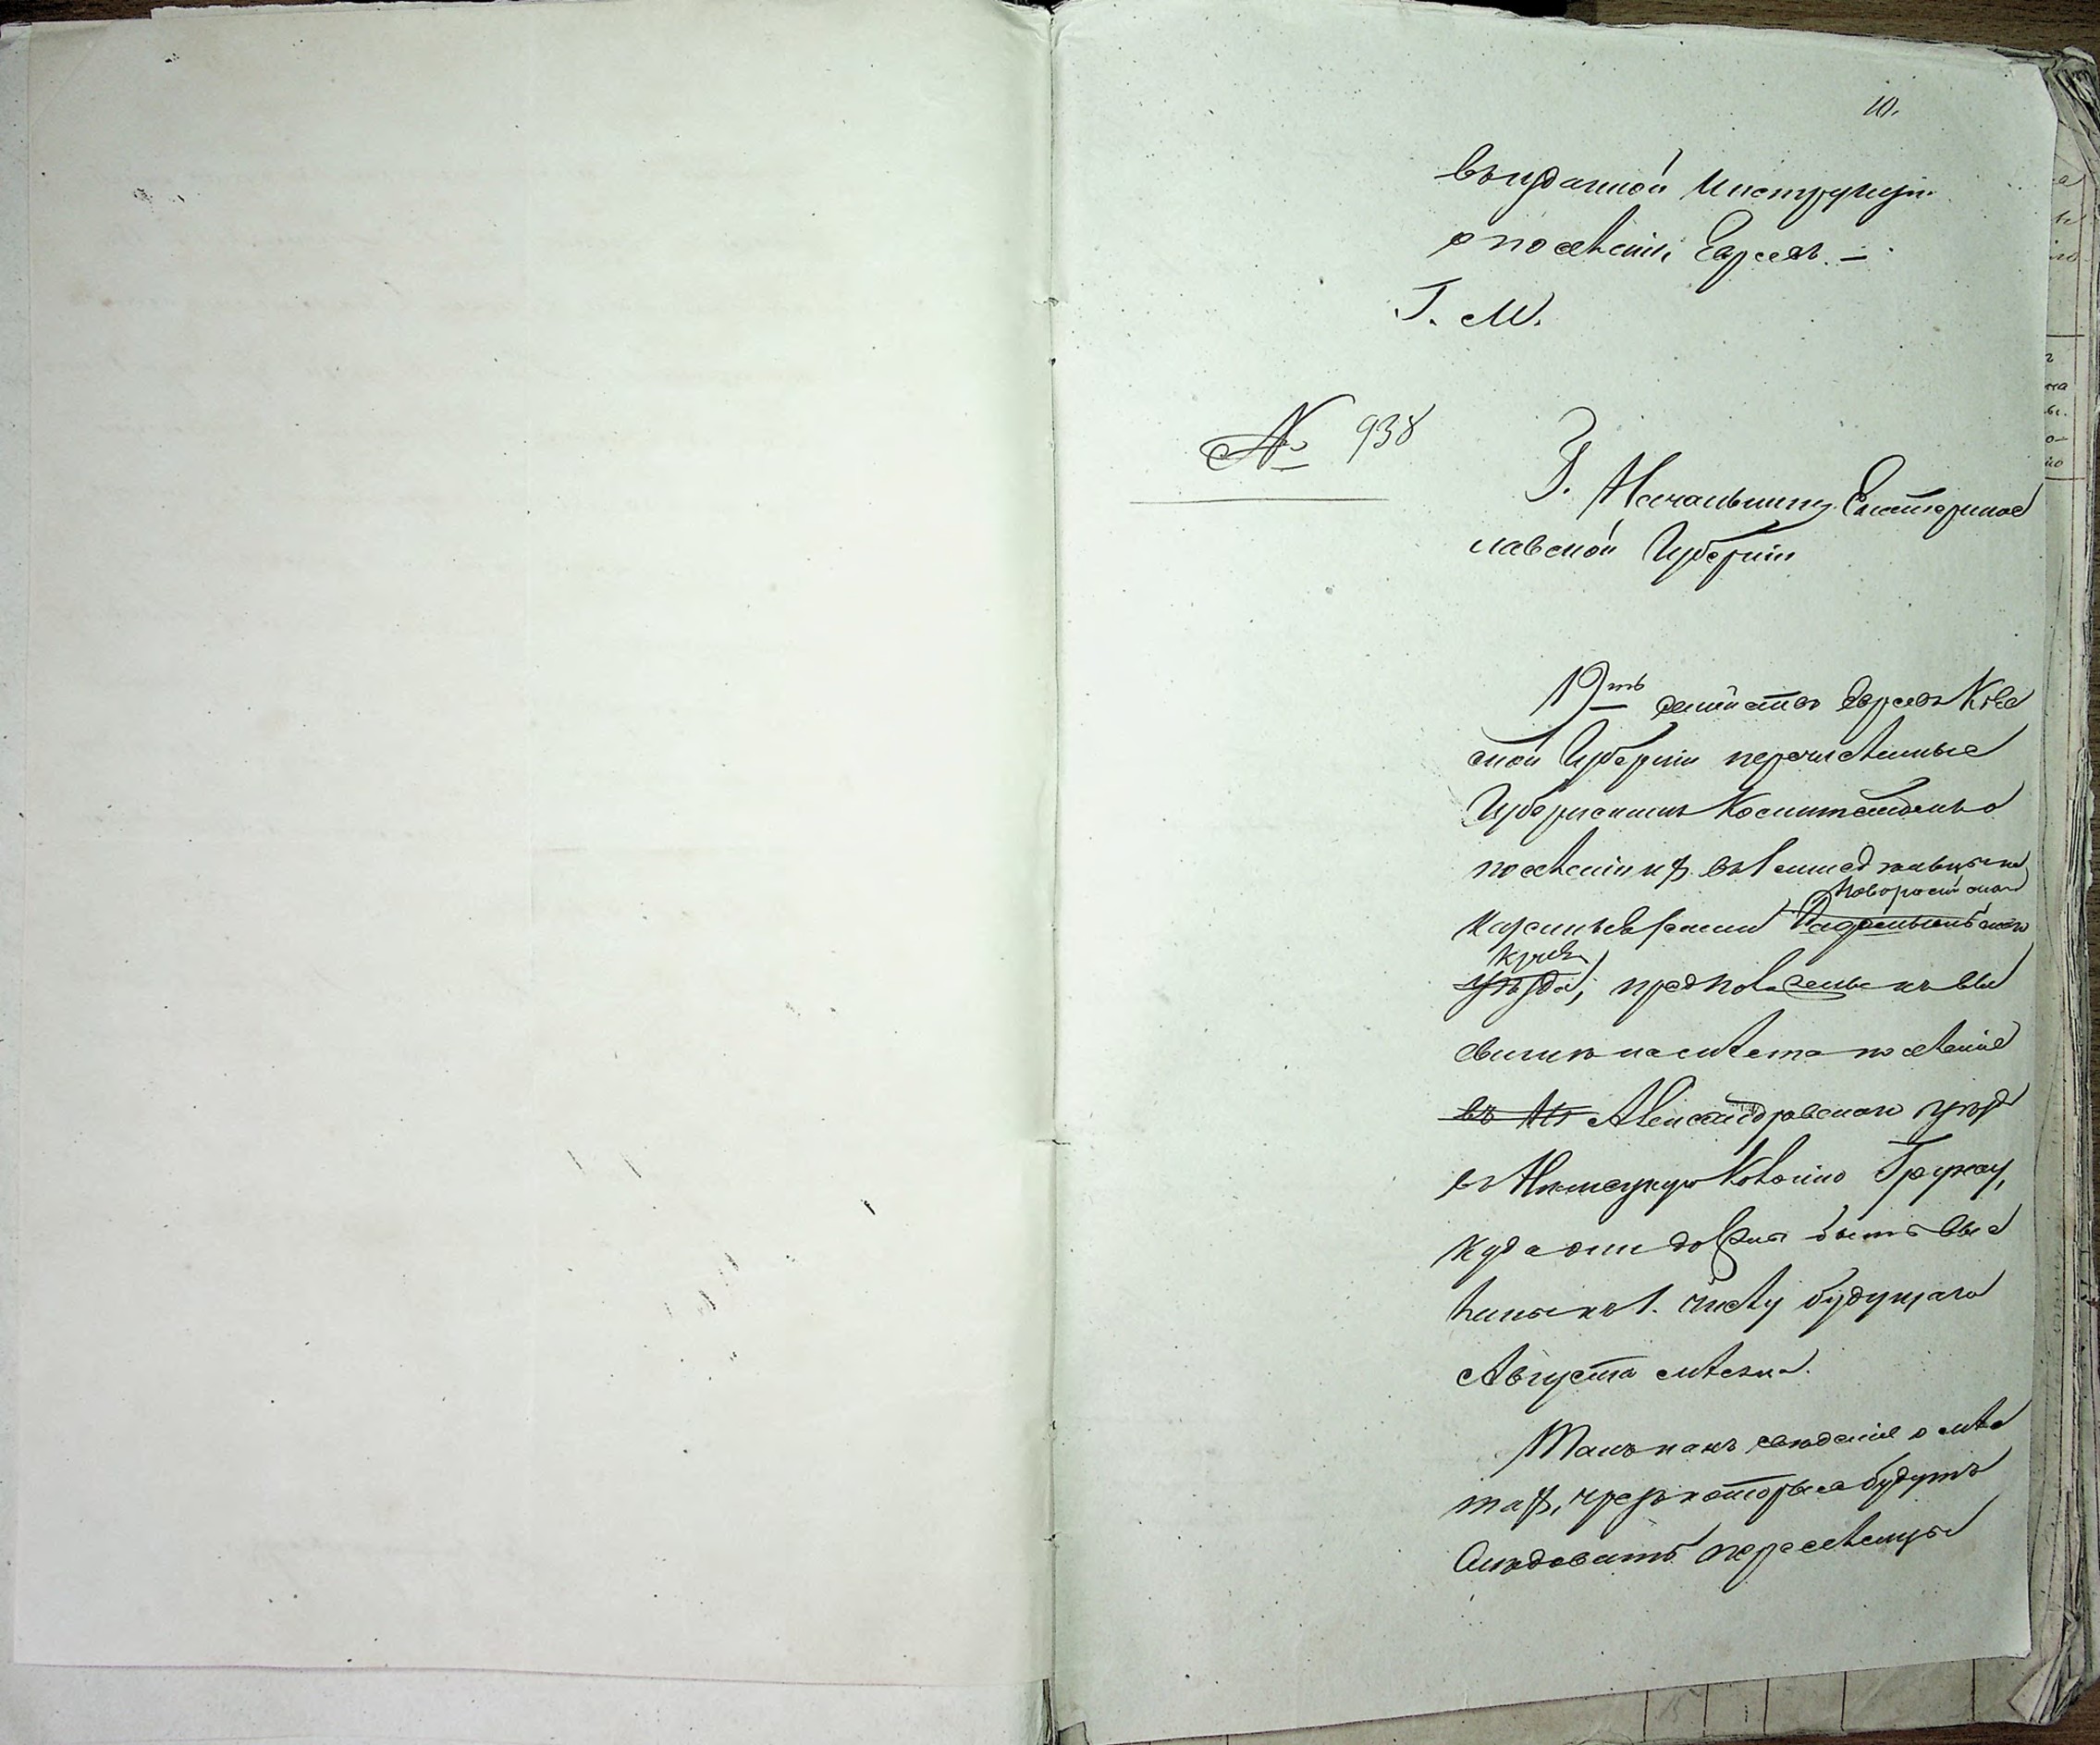 10.
въ изданной Инструкціи
о поселеніи Евреевъ. —
Г. М.
№ 938
Г. Начальнику Екатеринос
лавской Губерніи
19ть семействъ Евреевъ Кіев
ской Губерніи перечисленные
Губернскимъ Комитетомъ о
поселеніи ихъ въ
Новороссійскаго
края
уѣзда, предположены къ вы
на мѣста поселенія
въ Ал Александровскаго уѣзда
въ Нѣмецкую Колонію Грунау,
куда они должны быть высе
лены къ 1. числу будущаго
Августа мѣсяца.
Такъ какъ свѣденіе о мѣс
тахъ, чрезъ которыя будутъ
слѣдовать переселенцы